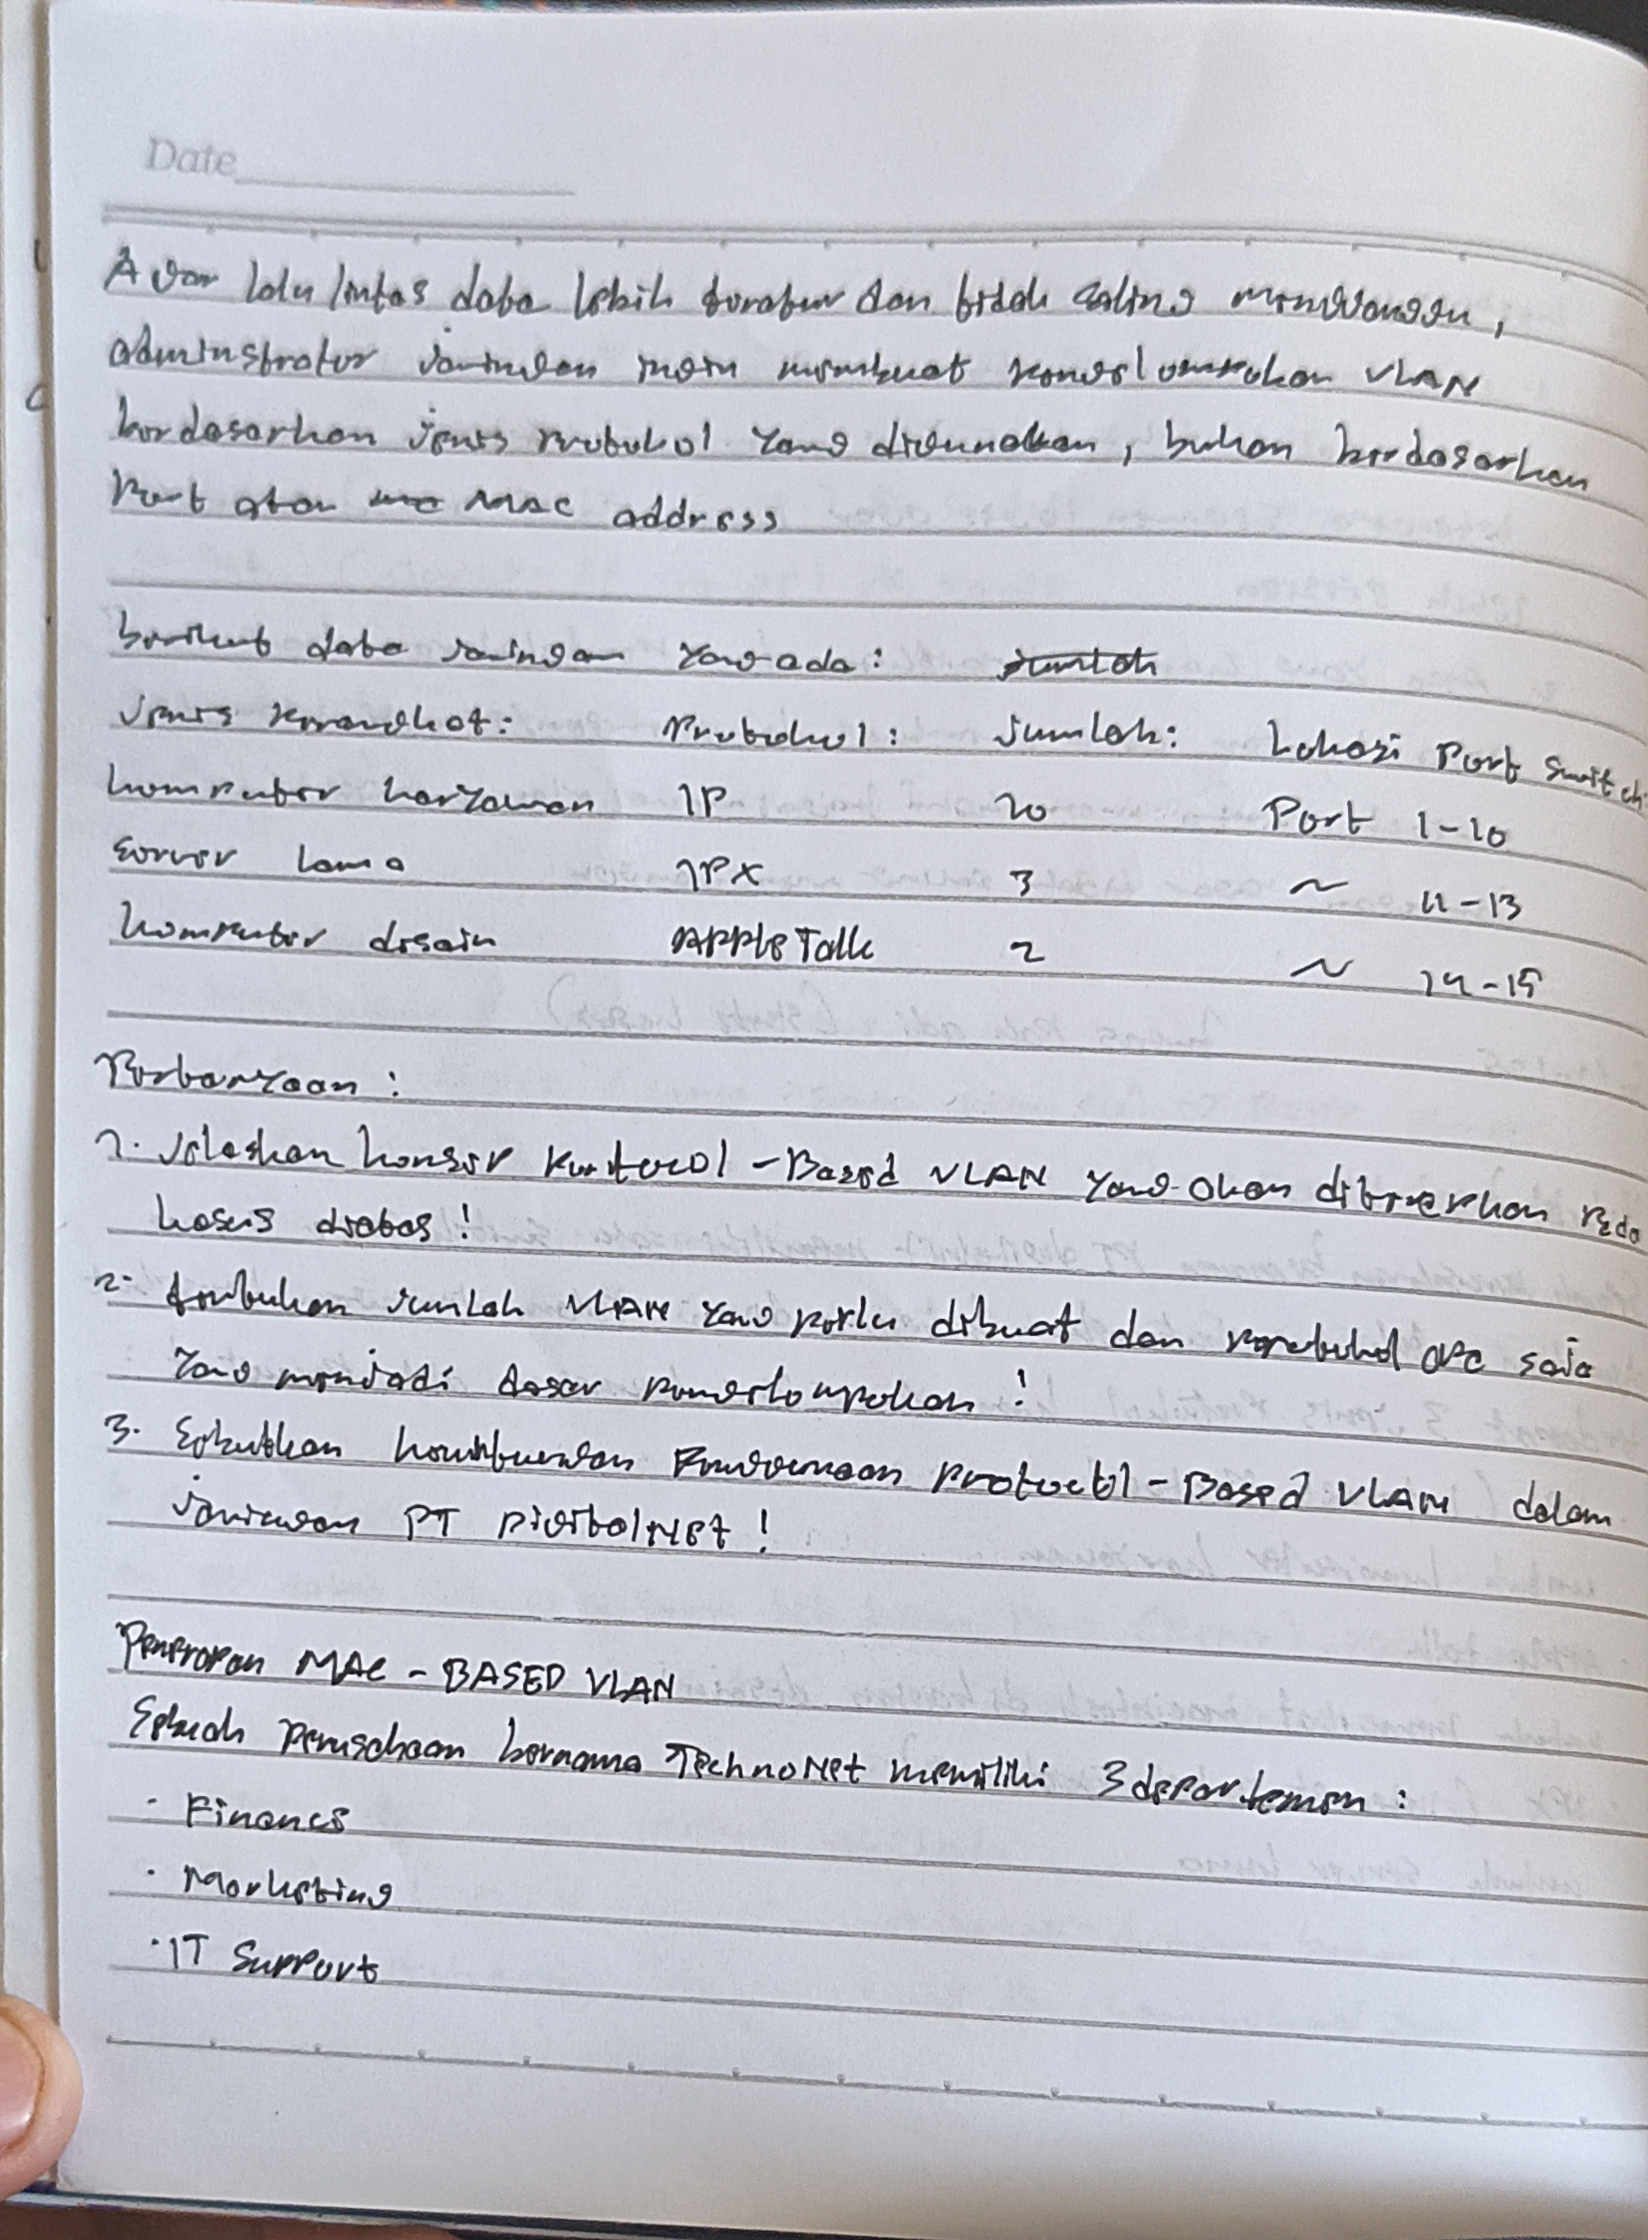 Date
Agar lalu lintas data lebih teratur dan tidak saling mengganggu,
administrator jaringan ingin membuat pengelompokan VLAN
berdasarkan jenis protokol yang digunakan, bukan berdasarkan
Port atau MAC address
berikut data jaringan yang ada: jumlah
Jenis perangkat: Protokol: jumlah: Lokasi Port Switch:
komputer karyawan IP 10 Port 1-10
server lama IPX 3 ~ 11-13
komputer desain AppleTalk 2 ~ 14-15
Pertanyaan:
1. Jelaskan konsep Protocol-Based VLAN yang akan diterapkan pada
kasus diatas!
2. tentukan jumlah VLAN yang perlu dibuat dan protokol apa saja
yang menjadi dasar pengelompokan!
3. Sebutkan keuntungan penggunaan Protocol-Based VLAN dalam
jaringan PT DigitalNet!
Penerapan MAC-BASED VLAN
Sebuah perusahaan bernama TechnoNet memiliki 3 departemen:
· Finance
· Marketing
· IT Support